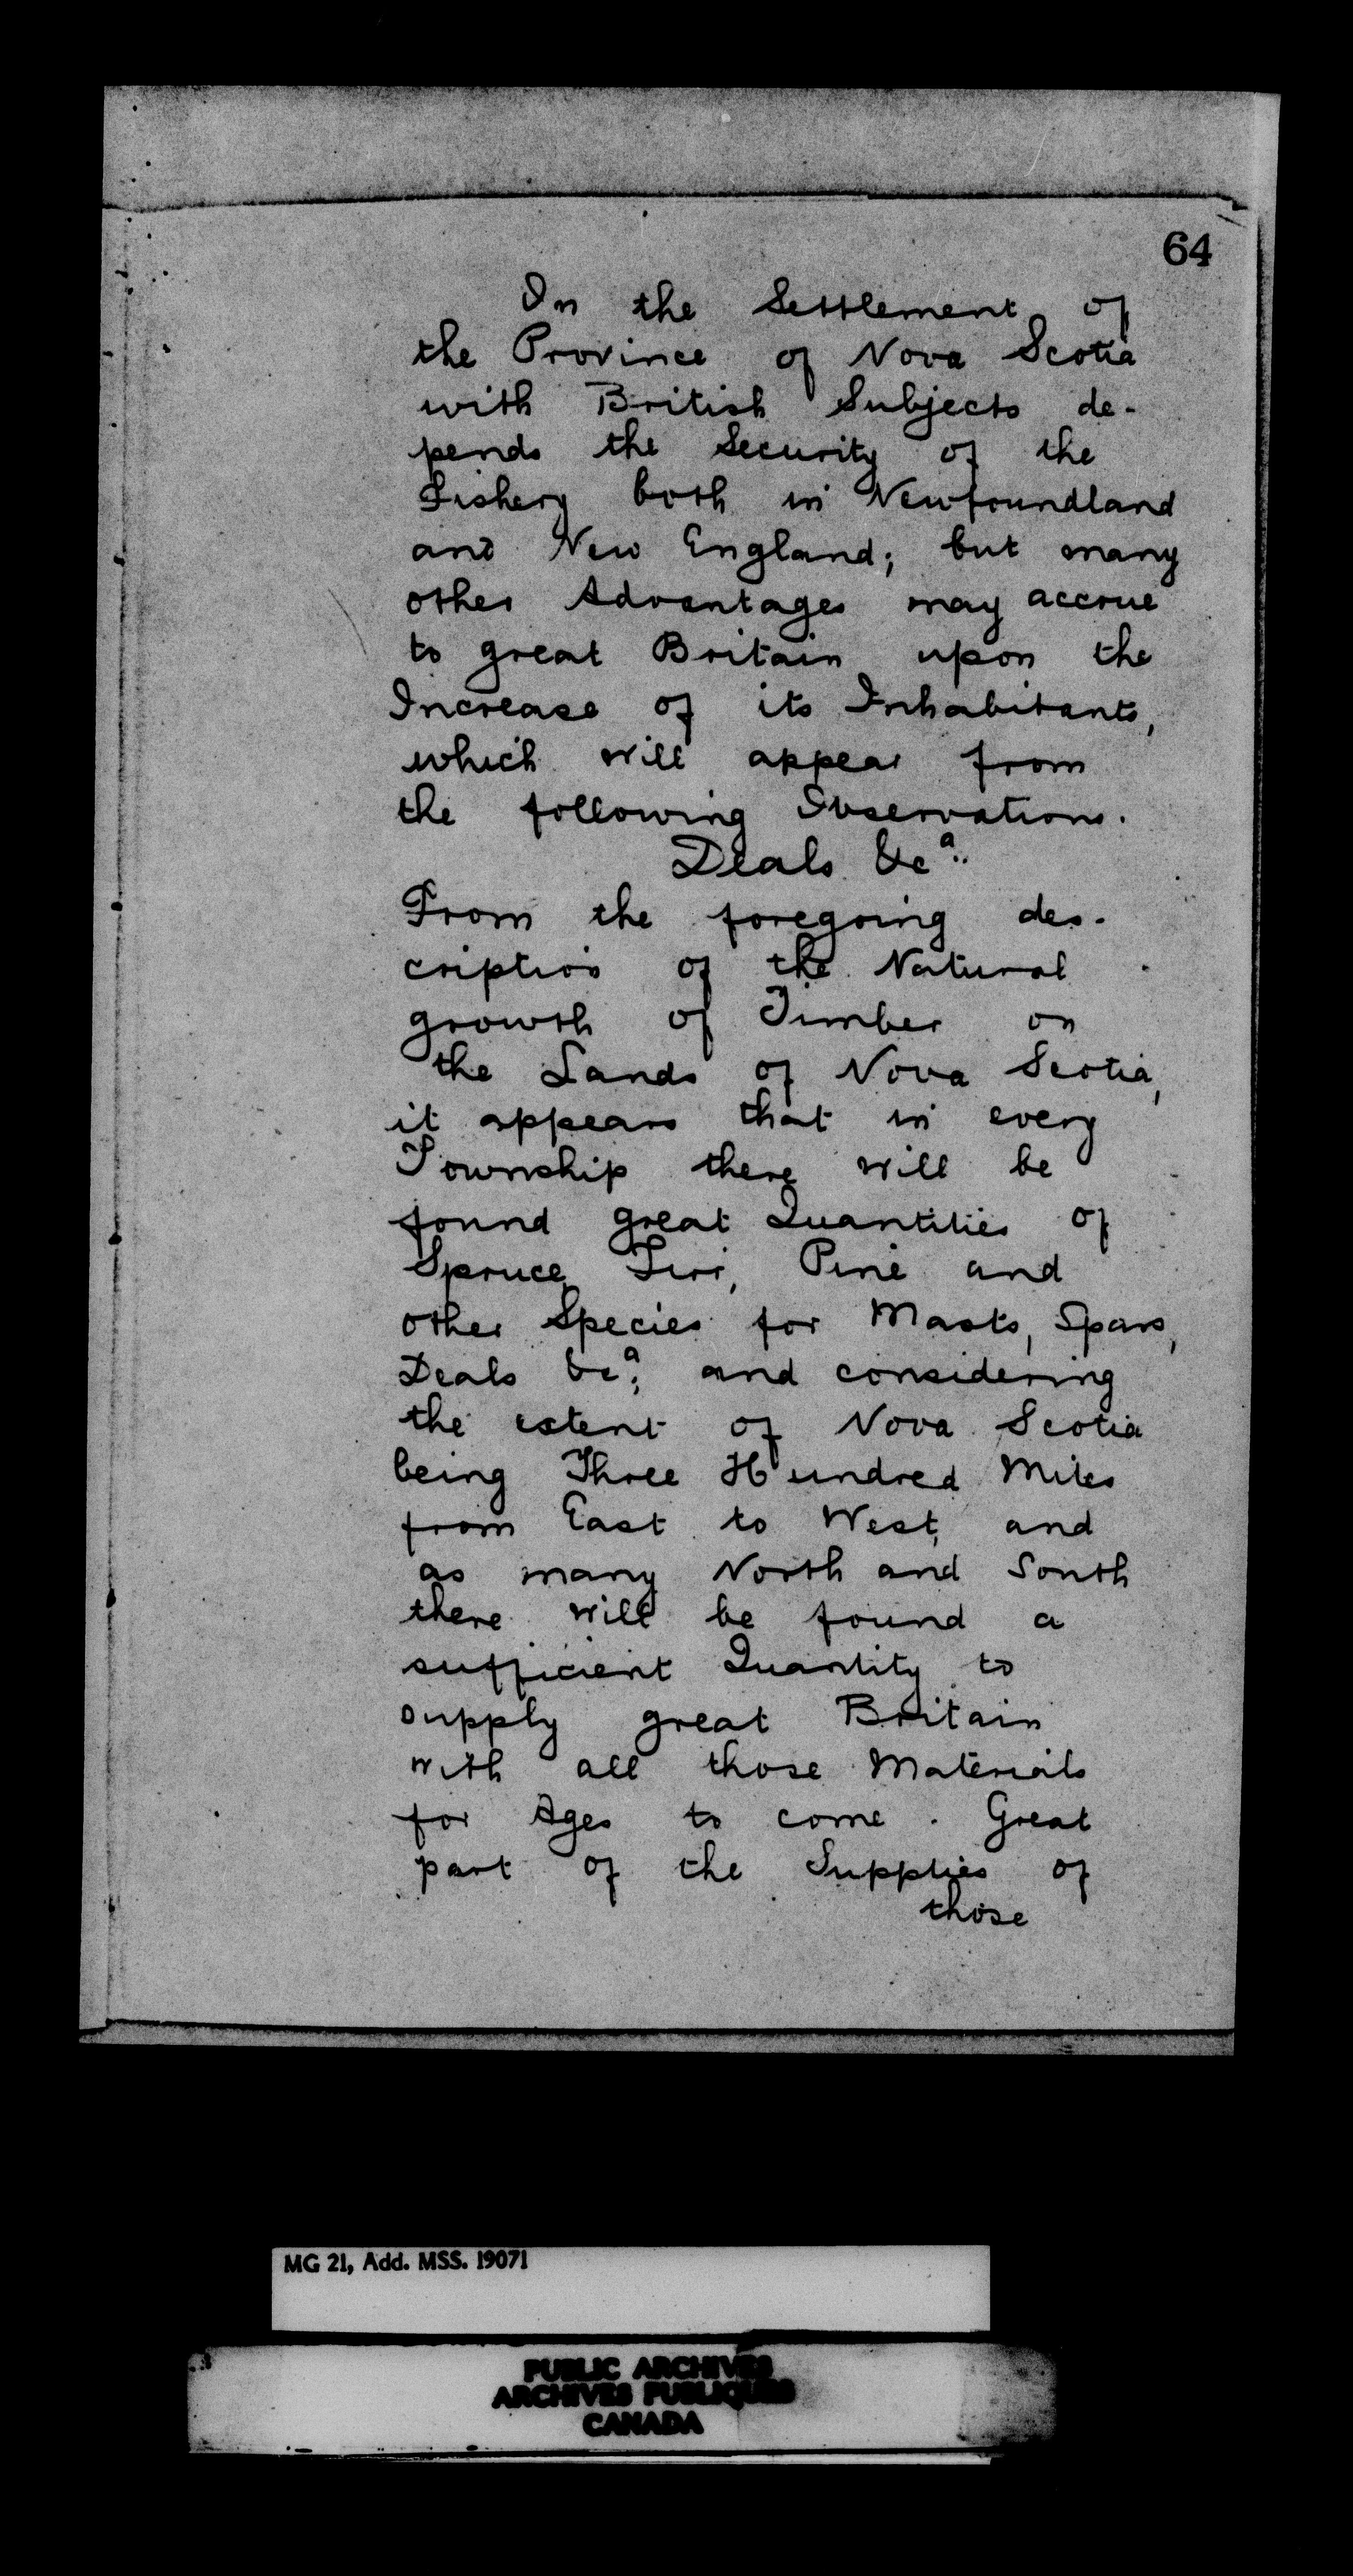 64
In the Settlement of
the Province of Nova Scotia
with British Subjects de-
pends the Security of the
Fishery both in Newfoundland
and New England; but many
other Advantages may accrue
to great Britain upon the
Increase of its Inhabitants,
which will appear from
the following Observations.
Deals &cª..
From the foregoing des-
cription of the Natural
growth of Timber on
the Lands of Nova Scotia,
it appears that in every
Township there will be
found great Quantities of
Spruce, Firr, Pine and
other Species for Masts, Spars,
Deals &cª; and considering
the extent of Nova Scotia
being Three Hundred Miles
from East to West, and
as many North and South
there will be found a
sufficient Quantity to
supply great Britain
with all those Materials
for Ages to come. Great
part of the Supplies of
those
MG 21, Add. MSS. 19071
PUBLIC ARCHIVES
ARCHIVES PUBLIQUES
CANADA